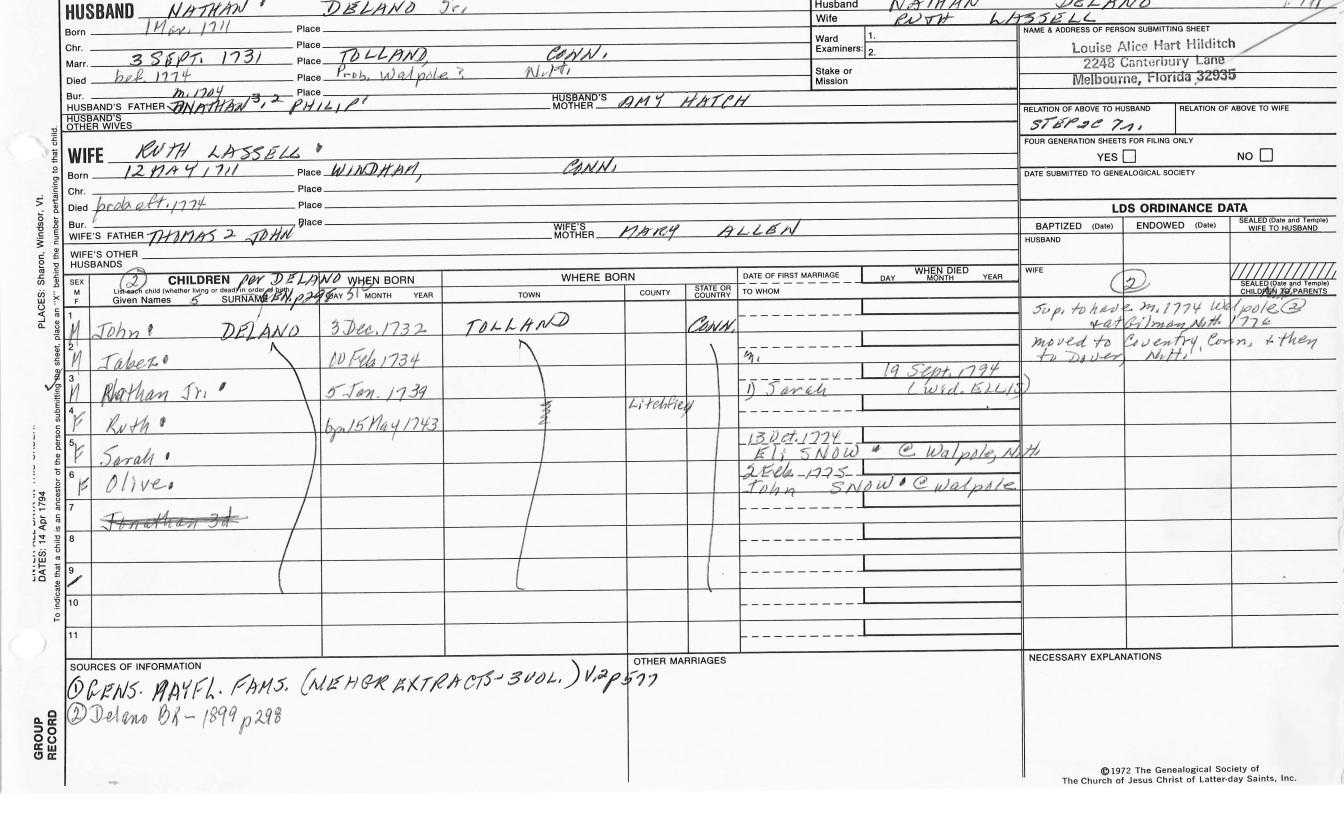 HUSBAND NATHAN DELAND Jr.
Husband NATHAN DELAND
Wife RUTH LASSELL
Born 1 Mar. 1711 Place
Chr. Place
Marr. 3 SEPT. 1731 Place TOLLAND, CONN.
Died bef 1774 Place Prob. Walpole? N.H.
Bur. Place
m. 1704
HUSBAND'S FATHER JONATHAN 3, 2 PHILIP 1
HUSBAND'S MOTHER AMY HATCH
HUSBAND'S OTHER WIVES
Ward 1.
Examiners: 2.
Stake or
Mission
NAME & ADDRESS OF PERSON SUBMITTING SHEET
Louise Alice Hart Hilditch
2248 Canterbury Lane
Melbourne, Florida 32935
RELATION OF ABOVE TO HUSBAND
RELATION OF ABOVE TO WIFE
STEP 2C 7r.
FOUR GENERATION SHEETS FOR FILING ONLY
YES NO
DATE SUBMITTED TO GENEALOGICAL SOCIETY
WIFE RUTH LASSELL
Born 12 MAY 1711 Place WINDHAM, CONN.
Chr. Place
Died prob aft. 1774 Place
Bur. Place
WIFE'S FATHER THOMAS 2 JOHN
WIFE'S MOTHER MARY ALLEN
WIFE'S OTHER HUSBANDS
LDS ORDINANCE DATA
BAPTIZED (Date) ENDOWED (Date) SEALED (Date and Temple) WIFE TO HUSBAND
HUSBAND
WIFE
SEALED (Date and Temple) CHILDREN TO PARENTS
SEX M F
2 CHILDREN per DELAND
List each child (whether living or dead) in order of birth
Given Names SURNAME GEN. p298
WHEN BORN
DAY MONTH YEAR
WHERE BORN
TOWN COUNTY STATE OR COUNTRY
DATE OF FIRST MARRIAGE
TO WHOM
WHEN DIED
DAY MONTH YEAR
2
1 M John DELAND 3 Dec. 1732 TOLLAND CONN.
Sup. to have m. 1774 Walpole 2
+ at Gilman, N.H. 1776
2 M Jabez 10 Feb 1734 m.
moved to Coventry, Conn, & then
to Dover, N.H.
3 M Nathan Jr. 5 Jan. 1739 1) Sarah 19 Sept. 1794
4 F Ruth bp 15 May 1743 Litchfield
5 F Sarah 13 Oct. 1774
Eli SNOW @ Walpole, N.H.
6 F Olive 2 Feb 1775
John SNOW @ Walpole
7 Jonathan 3d
8
9
10
11
SOURCES OF INFORMATION
1 GENS. MAYFL. FAMS. (NEHGR EXTRACTS - 3 VOL.) V.2 p577
2 Delano BK - 1899 p298
OTHER MARRIAGES
NECESSARY EXPLANATIONS
©1972 The Genealogical Society of
The Church of Jesus Christ of Latter-day Saints, Inc.
PLACES: Sharon, Windsor, Vt.
DATES: 14 Apr 1794
To indicate that a child is an ancestor of the person submitting the sheet, place an "X" behind the number pertaining to that child.
GROUP
RECORD